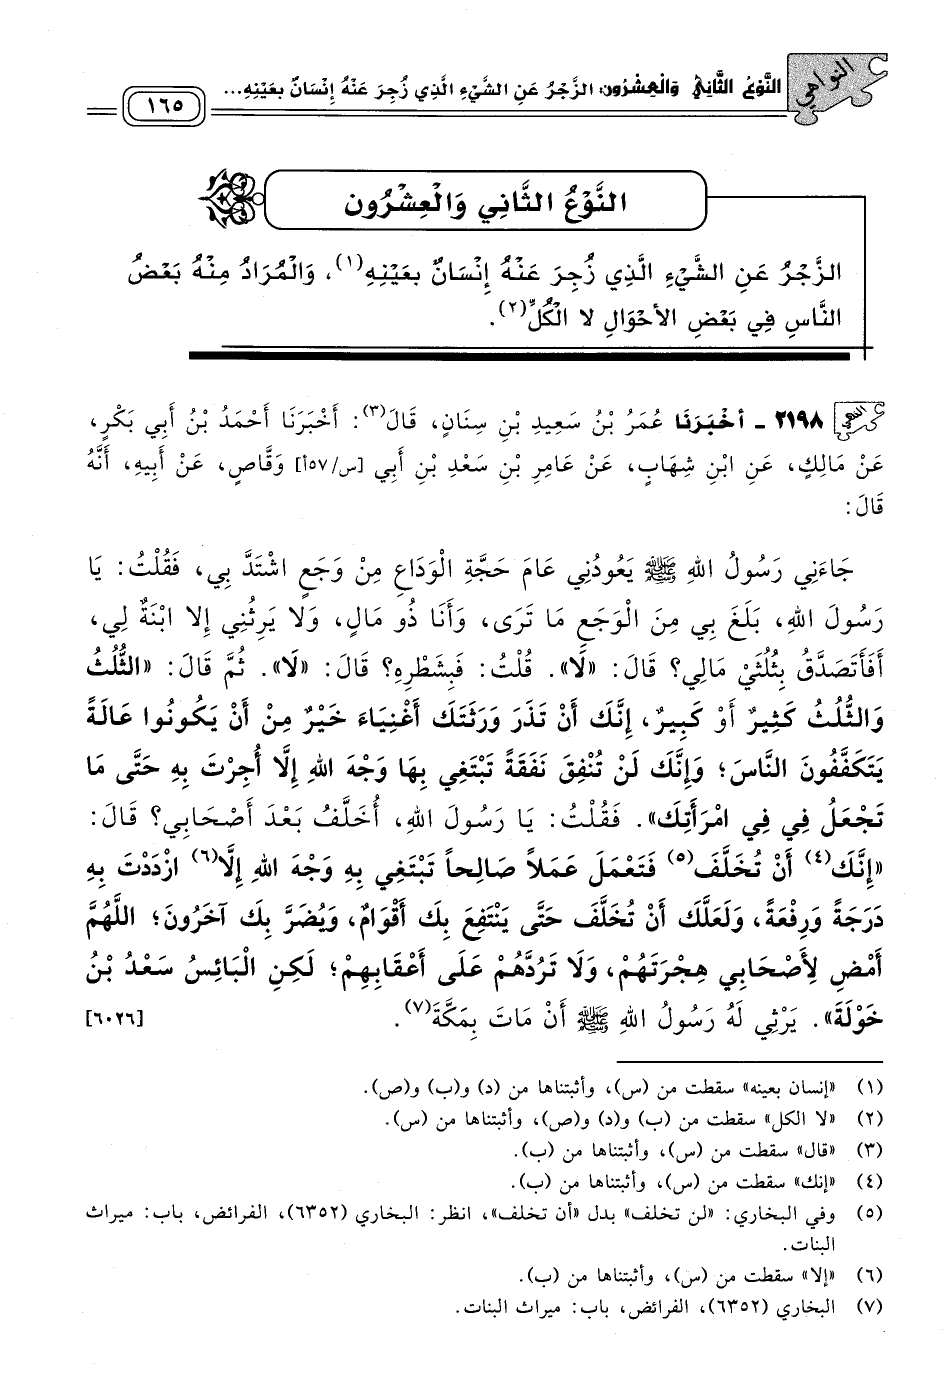 النواهي
النَّوْعُ الثَّانِي وَالْعِشْرُون: الزَّجْرُ عَنِ الشَّيْءِ الَّذِي زُجِرَ عَنْهُ إِنْسَانٌ بعَيْنِهِ...
١٦٥
النَّوْعُ الثَّانِي وَالْعِشْرُون
الزَّجْرُ عَنِ الشَّيْءِ الَّذِي زُجِرَ عَنْهُ إِنْسَانٌ بعَيْنِهِ(١)، وَالْمُرَادُ مِنْهُ بَعْضُ
النَّاسِ فِي بَعْضِ الأَحْوَالِ لا الْكُلِّ(٢).
٢١٩٨ - أَخْبَرَنَا عُمَرُ بْنُ سَعِيدِ بْنِ سِنَانٍ، قَالَ(٣): أَخْبَرَنَا أَحْمَدُ بْنُ أَبِي بَكْرٍ،
عَنْ مَالِكٍ، عَنِ ابْنِ شِهَابٍ، عَنْ عَامِرِ بْنِ سَعْدِ بْنِ أَبِي [س/٥٧أ] وَقَّاصٍ، عَنْ أَبِيهِ، أَنَّهُ
قَالَ:
جَاءَنِي رَسُولُ اللهِ ﷺ يَعُودُنِي عَامَ حَجَّةِ الْوَدَاعِ مِنْ وَجَعٍ اشْتَدَّ بِي، فَقُلْتُ: يَا
رَسُولَ اللهِ، بَلَغَ بِي مِنَ الْوَجَعِ مَا تَرَى، وَأَنَا ذُو مَالٍ، وَلَا يَرِثُنِي إِلا ابْنَةٌ لِي،
أَفَأَتَصَدَّقُ بِثُلُثَيْ مَالِي؟ قَالَ: «لَا». قُلْتُ: فَبِشَطْرِهِ؟ قَالَ: «لَا». ثُمَّ قَالَ: «الثُّلُثُ
وَالثُّلُثُ كَثِيرٌ أَوْ كَبِيرٌ، إِنَّكَ أَنْ تَذَرَ وَرَثَتَكَ أَغْنِيَاءَ خَيْرٌ مِنْ أَنْ يَكُونُوا عَالَةً
يَتَكَفَّفُونَ النَّاسَ؛ وَإِنَّكَ لَنْ تُنْفِقَ نَفَقَةً تَبْتَغِي بِهَا وَجْهَ اللهِ إِلَّا أُجِرْتَ بِهِ حَتَّى مَا
تَجْعَلُ فِي فِي امْرَأَتِكَ». فَقُلْتُ: يَا رَسُولَ اللهِ، أُخَلَّفُ بَعْدَ أَصْحَابِي؟ قَالَ:
«إِنَّكَ(٤) أَنْ تُخَلَّفَ(٥) فَتَعْمَلَ عَمَلاً صَالِحاً تَبْتَغِي بِهِ وَجْهَ اللهِ إِلَّا(٦) ازْدَدْتَ بِهِ
دَرَجَةً وَرِفْعَةً، وَلَعَلَّكَ أَنْ تُخَلَّفَ حَتَّى يَنْتَفِعَ بِكَ أَقْوَامٌ، وَيُضَرَّ بِكَ آخَرُونَ؛ اللَّهُمَّ
أَمْضِ لِأَصْحَابِي هِجْرَتَهُمْ، وَلَا تَرُدَّهُمْ عَلَى أَعْقَابِهِمْ؛ لَكِنِ الْبَائِسُ سَعْدُ بْنُ
خَوْلَةَ». يَرْثِي لَهُ رَسُولُ اللهِ ﷺ أَنْ مَاتَ بِمَكَّةَ(٧). [٦٠٢٦]
(١) «إنسان بعينه» سقطت من (س)، وأثبتناها من (د) و(ب) و(ص).
(٢) «لا الكل» سقطت من (ب) و(د) و(ص)، وأثبتناها من (س).
(٣) «قال» سقطت من (س)، وأثبتناها من (ب).
(٤) «إنك» سقطت من (س)، وأثبتناها من (ب).
(٥) وفي البخاري: «لن تخلف» بدل «أن تخلف»، انظر: البخاري (٦٣٥٢)، الفرائض، باب: ميراث
البنات.
(٦) «إلا» سقطت من (س)، وأثبتناها من (ب).
(٧) البخاري (٦٣٥٢)، الفرائض، باب: ميراث البنات.